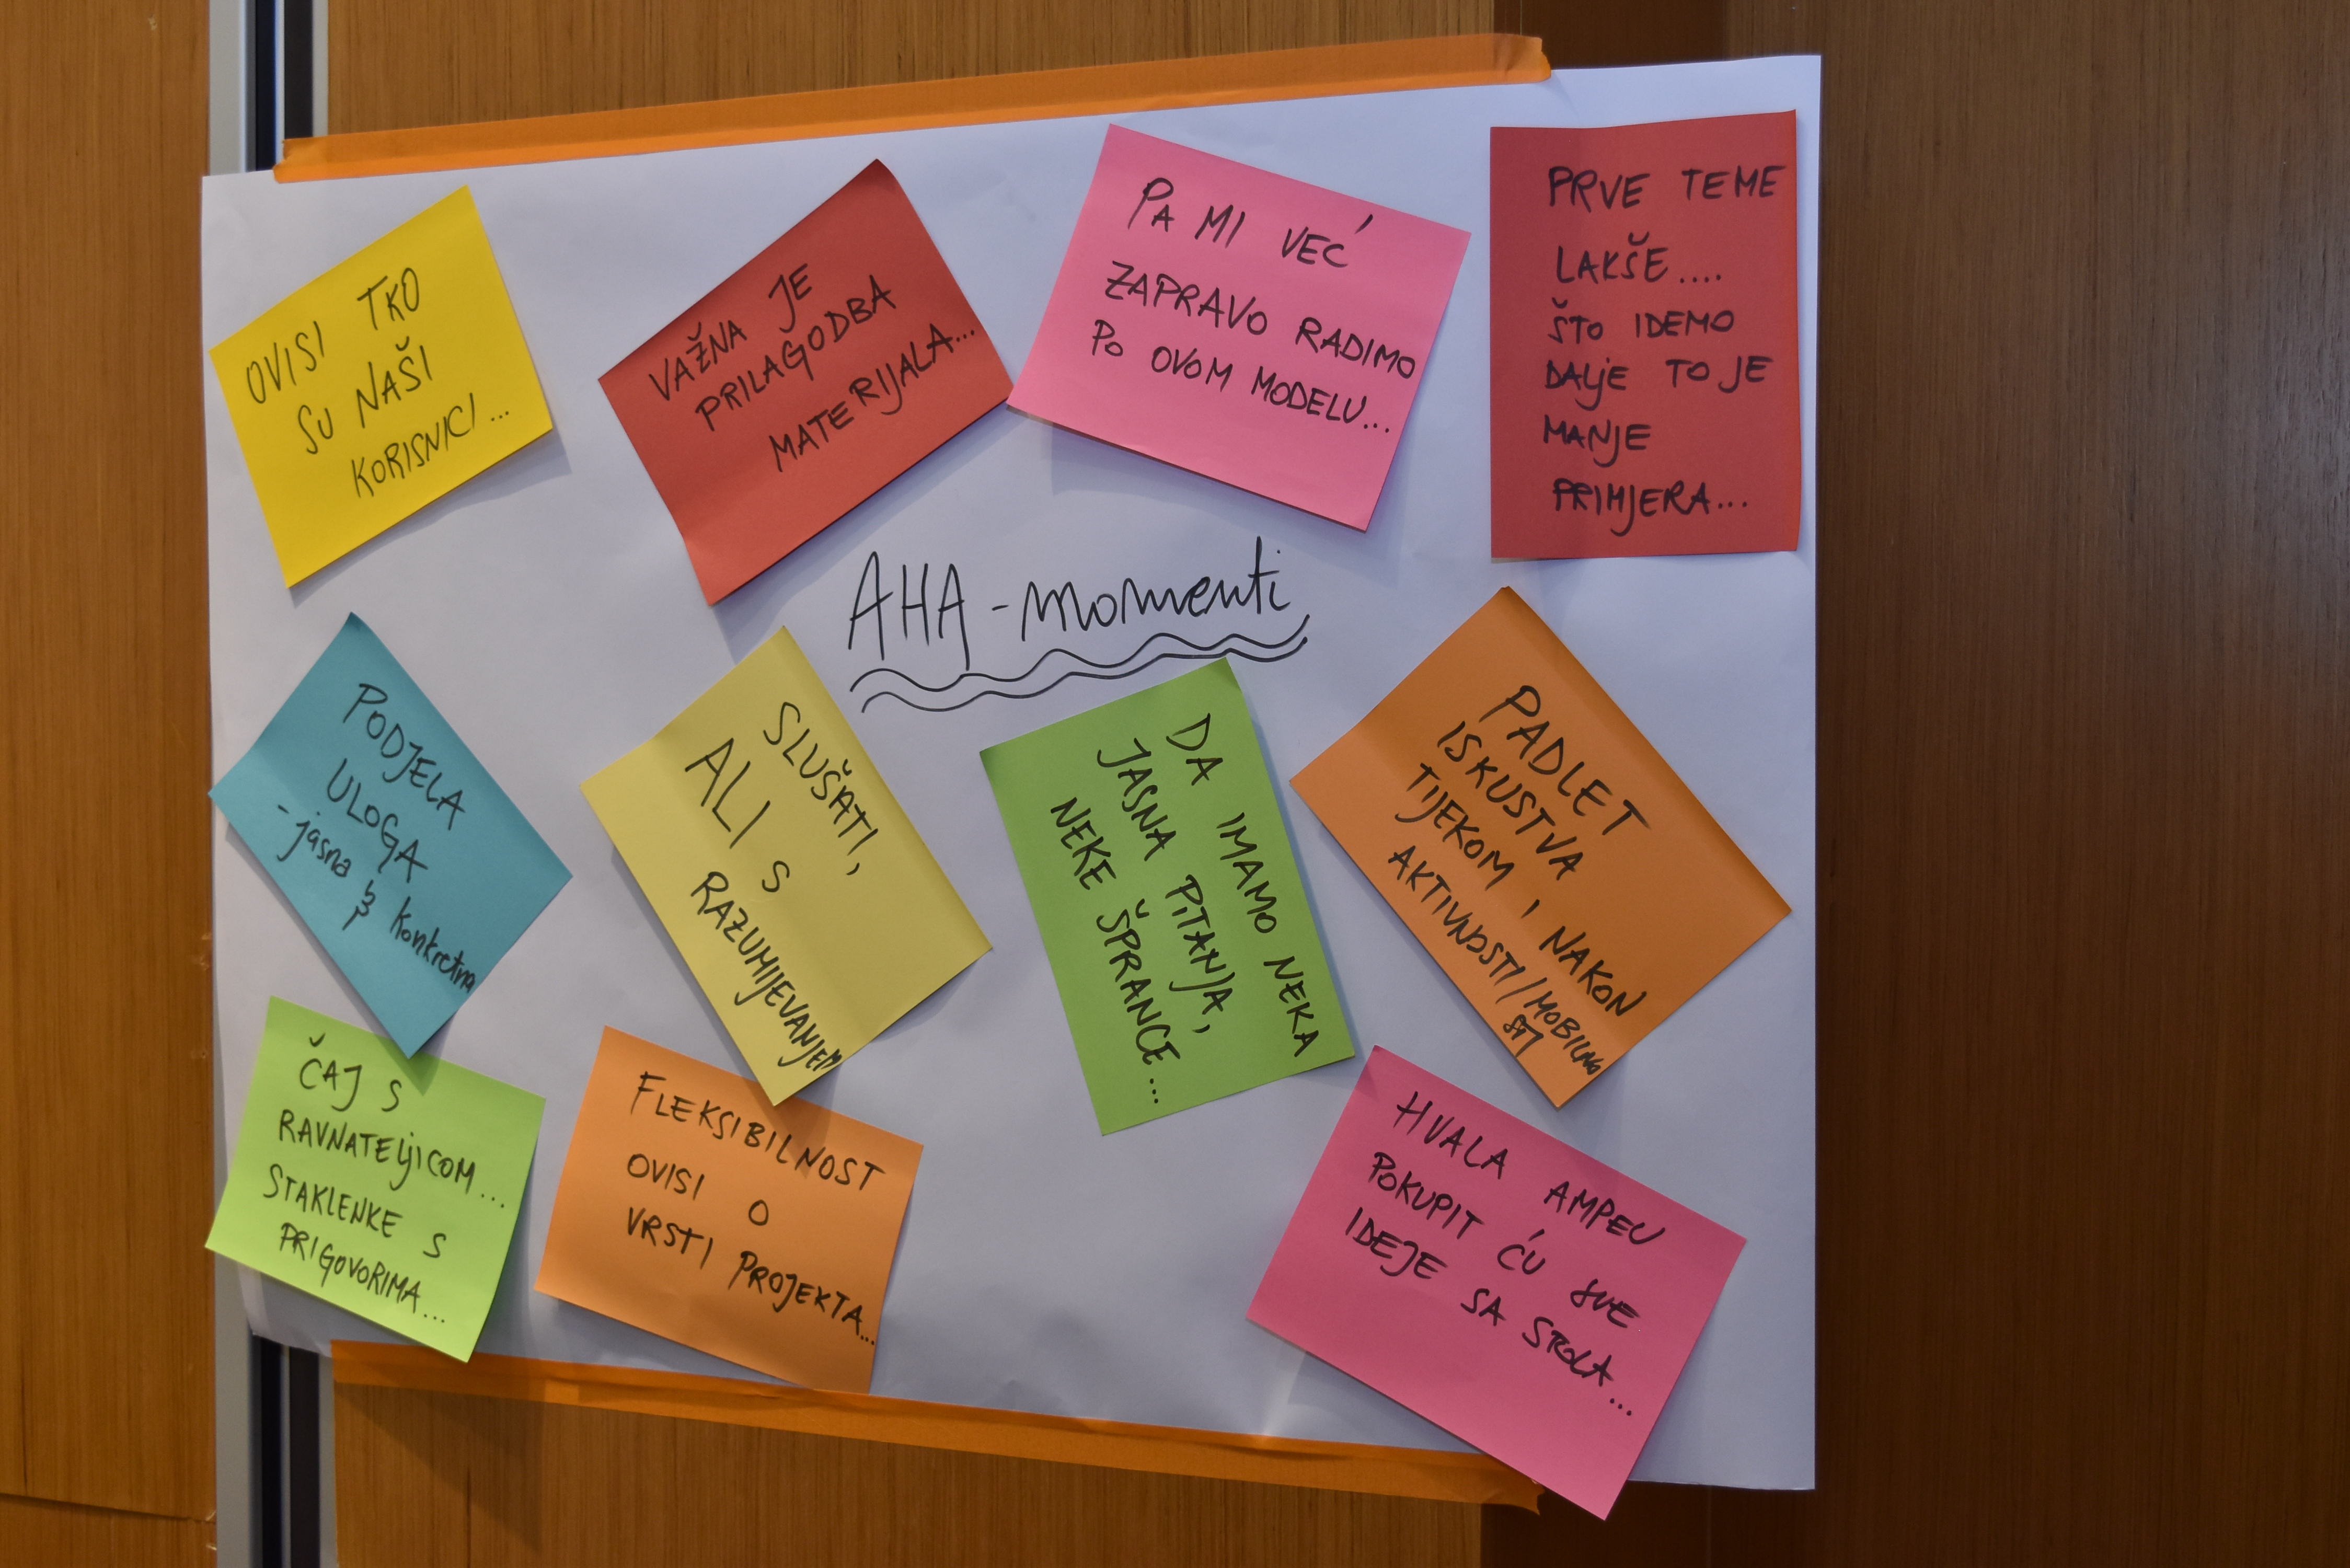 OVISI TKO
SU NAŠI
KORISNICI...
VAŽNA JE
PRILAGODBA
MATERIJALA...
PA MI VEĆ
ZAPRAVO RADIMO
PO OVOM MODELU...
PRVE TEME
LAKŠE....
ŠTO IDEMO
DALJE TO JE
MANJE
PRIMJERA...
AHA-momenti
PODJELA
ULOGA
- jasna & konkretna
SLUŠATI,
ALI S
RAZUMIJEVANJEM
DA IMAMO NEKA
JASNA PITANJA,
NEKE ŠPRANCE...
PADLET
ISKUSTVA
TIJEKOM I NAKON
AKTIVNOSTI/MOBILNO
STI
ČAJ S
RAVNATELJICOM...
STAKLENKE S
PRIGOVORIMA...
FLEKSIBILNOST
OVISI O
VRSTI PROJEKTA...
HVALA AMPEU
POKUPIT ĆU SVE
IDEJE SA STOLA...